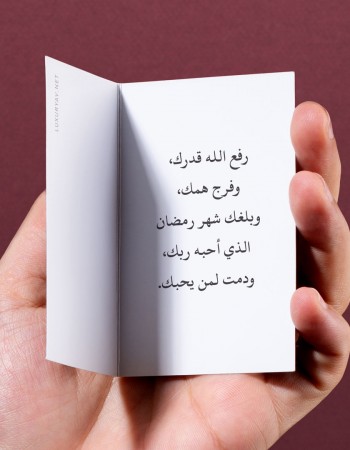 رفع الله قدرك،
وفرج همك،
وبلغك شهر رمضان
الذي أحبه ربك،
ودمت لمن يحبك.
LUXURYAY.NET